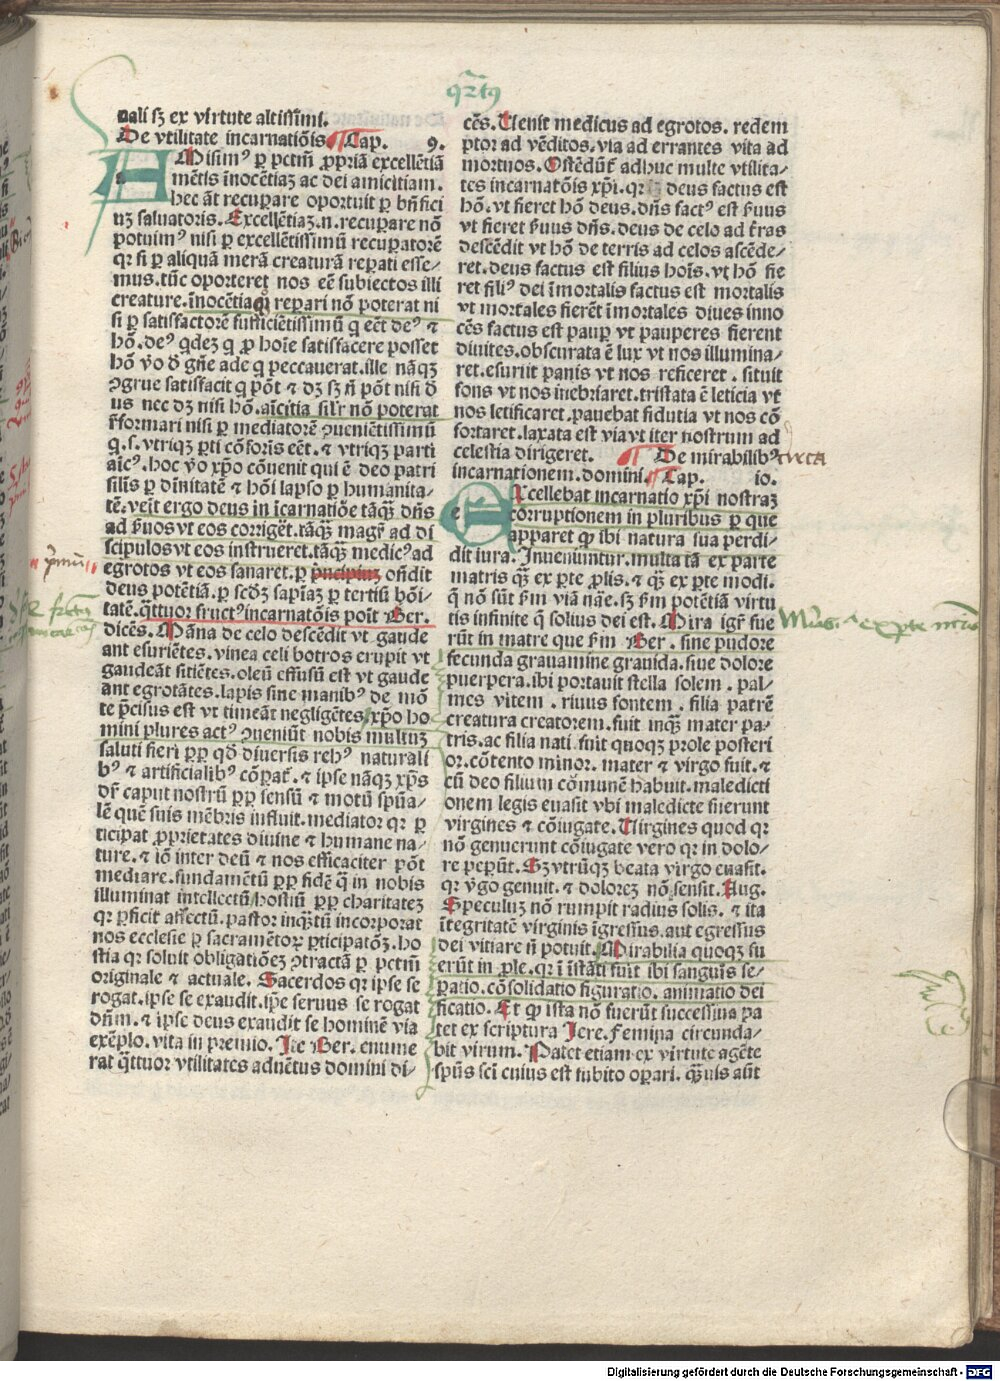 qrtꝰ
nali sꝫ ex virtute altissimi.
De vtilitate incarnatiõis Cap. 9.
AMisimꝰ ꝑ pctm̃ ꝓpriã excellẽtiã
mẽtis ĩnocẽtiaꝫ ac dei amicitiam.
hec aũt recuꝑare oportuit ꝑ bñfici
uꝫ saluatoris. Excellẽtiaꝫ.n.recuꝑare nõ
potuimꝰ nisi ꝑ excellẽtissimũ recuꝑatorẽ
qꝛ si ꝑ aliquã merã creaturã reꝑati esse⸗
mus.tũc oporteret nos eẽ subiectos illi
creature.ĩnocẽtia reꝑari nõ poterat ni
si ꝑ satisfactorẽ sufficiẽtissimũ q eẽt deꝰ ⁊
hõ.deꝰ qdeꝫ q ꝓ hoĩe satisfacere posset
hõ ṽo d̃ gñe ade q peccauerat.ille nãqꝫ
ꝯgrue satisfacit q põt ⁊ dꝫ sꝫ ñ põt nisi d̃
us nec dꝫ nisi hõ.aĩcitia sil'r nõ poterat
r̃formari nisi ꝑ mediatorẽ ꝯueniẽtissimũ
q.s.vtriqꝫ ꝑti cõforis eẽt.⁊ vtriqꝫ parti
aĩcꝰ.hoc ṽo xp̃o cõuenit qui ẽ deo patri
silis ꝑ diñitatẽ ⁊ hõi lapso ꝑ humanita⸗
tẽ.veĩt ergo deus in ĩcarnatiõe tãqꝫ dñs
ad ẽuos vt eos corrigẽt.tãqꝫ magr̃ ad di
scipulos vt eos instrueret.tãqꝫ medicꝰ ad
egrotos vt eos sanaret.ꝑ oñdit
pꝛimũ
deus potẽtiã.ꝑ scdꝫ sapĩaꝫ ꝑ tertiũ bõi⸗
tatẽ.q̃ttuor fructꝰ incarnatõis poĩt Ber.
dicẽs. Mãna de celo descẽdit vt gaude
ant esuriẽtes.vinea celi botros erupit vt
gaudeãt sitiẽtes.oleũ effusũ est vt gaude
ant egrotãtes.lapis sine manibꝰ de mõ
te p̃cisus est vt timeãt negligẽtes.xp̃o ho
mini plures actꝰ ꝯueniũt nobis multuꝫ
saluti fieri ꝓꝑ qđ diuersis rebꝰ naturali
bꝰ ⁊ artificialibꝰ cõꝑat̃.⁊ ipse nãqꝫ xp̃s
dr̃ caput nostrũ ꝓꝑ sensũ ⁊ motũ spũa⸗
lẽ quẽ suis mẽbris influit.mediator qꝛ ꝑ
ticipat ꝓprietates diuine ⁊ humane na⸗
ture.⁊ iõ inter deũ ⁊ nos efficaciter põt
mediare.fundamẽtũ ꝓꝑ fidẽ q̃ in nobis
illuminat intellectũ/hostiũ ꝓꝑ charitateꝫ
qꝛ ꝑficit affectũ.pastor inqꝫtũ incorporat
nos ecclesie ꝑ sacramẽtoꝝ ꝑticipatõꝫ.ho
stia qꝛ soluit obligatiõeꝫ ꝯtractã ꝑ pctm̃
originale ⁊ actuale. Sacerdos qꝛ ipse se
rogat.ipse se exaudit.ip̃e seruus se rogat
dñm.⁊ ipse deus exaudit se hominẽ via
exẽplo.vita in premio. Itẽ Ber. enume
rat q̃ttuor vtilitates aduẽtus domini di⸗
cẽs. Uenit medicus ad egrotos. redem
ptor ad vẽditos.via ad errantes vita ad
mortuos. Ostẽdũt̃ adhuc multe vtilita⸗
tes incarnatõis xp̃i.qꝛ deus factus est
hõ.vt fieret hõ deus.dñs factꝰ est ẽuus
vt fieret ẽuus dñs.deus de celo ad t̃ras
descẽdit vt hõ de terris ad celos ascẽde⸗
ret.deus factus est filius hoĩs.vt hõ fie
ret filiꝰ dei ĩmortalis factus est mortalis
vt mortales fierẽt ĩmortales diues inno
cẽs factus est pauꝑ vt pauperes fierent
diuites.obscurata ẽ lux vt nos illumina⸗
ret.esuriit panis vt nos reficeret . sitiuit
fons vt nos inebriaret.tristata ẽ leticia vt
nos letificaret.pauebat fidutia vt nos cõ
fortaret.laxata est via vt iter nostrum ad
celestia dirigeret. De mirabilibꝰ circa
incarnationem.domini. Cap. io.
EXcellebat incarnatio xp̃i nostraꝫ
corruptionem in pluribus ꝑ que
apparet ꝙ ibi natura sua perdi⸗
dit iura. Inueniuntur.multa tã ex parte
matris qꝫ ex ꝑte ꝓlis.⁊ qꝫ ex ꝑte modi.
q̃ nõ sũt ẽm viã nãe.sꝫ ẽm potẽtiã virtu
tis infinite q̃ solius dei est. Mira igr̃ fue
rũt in matre que ẽm Ber . sine pudore
fecunda grauamine grauida.siue dolore
puerpera.ibi portauit stella solem . pal⸗
mes vitem . riuus fontem . filia patrẽ
creatura creatorem.fuit inqꝫ mater pa⸗
tris.ac filia nati.fuit quoqꝫ prole posteri
or.cõtento minor. mater ⁊ virgo fuit.⁊
cũ deo filium cõmunẽ habuit.maledicti
onem legis euasit vbi maledicte fuerunt
virgines ⁊ cõiugate. Uirgines quod qꝛ
nõ genuerunt cõiugate vero qꝛ in dolo⸗
re peꝑũt. Sꝫ vtrũqꝫ beata virgo euasit.
qꝛ v̾go genuit.⁊ doloreꝫ nõ sensit. Aug.
Speculuꝫ nõ rumpit radius solis. ⁊ ita
ĩtegritatẽ virginis ĩgressus.aut egressus
dei vitiare ñ potuit. Mirabilia quoqꝫ fu
erũt in ꝓle.qꝛ ĩ ĩstãti fuit ibi sanguis se⸗
ꝑatio.cõsolidatio figuratio. animatio dei
ficatio. Et ꝙ ista nõ fuerũt successiua pa
tet ex scriptura Jere. Femina circunda⸗
bit virum. Patet etiam ex virtute agẽte
spũs sci cuius est subito oꝑari. q̃uis aũt
Digitalisierung gefördert durch die Deutsche Forschungsgemeinschaft - DFG